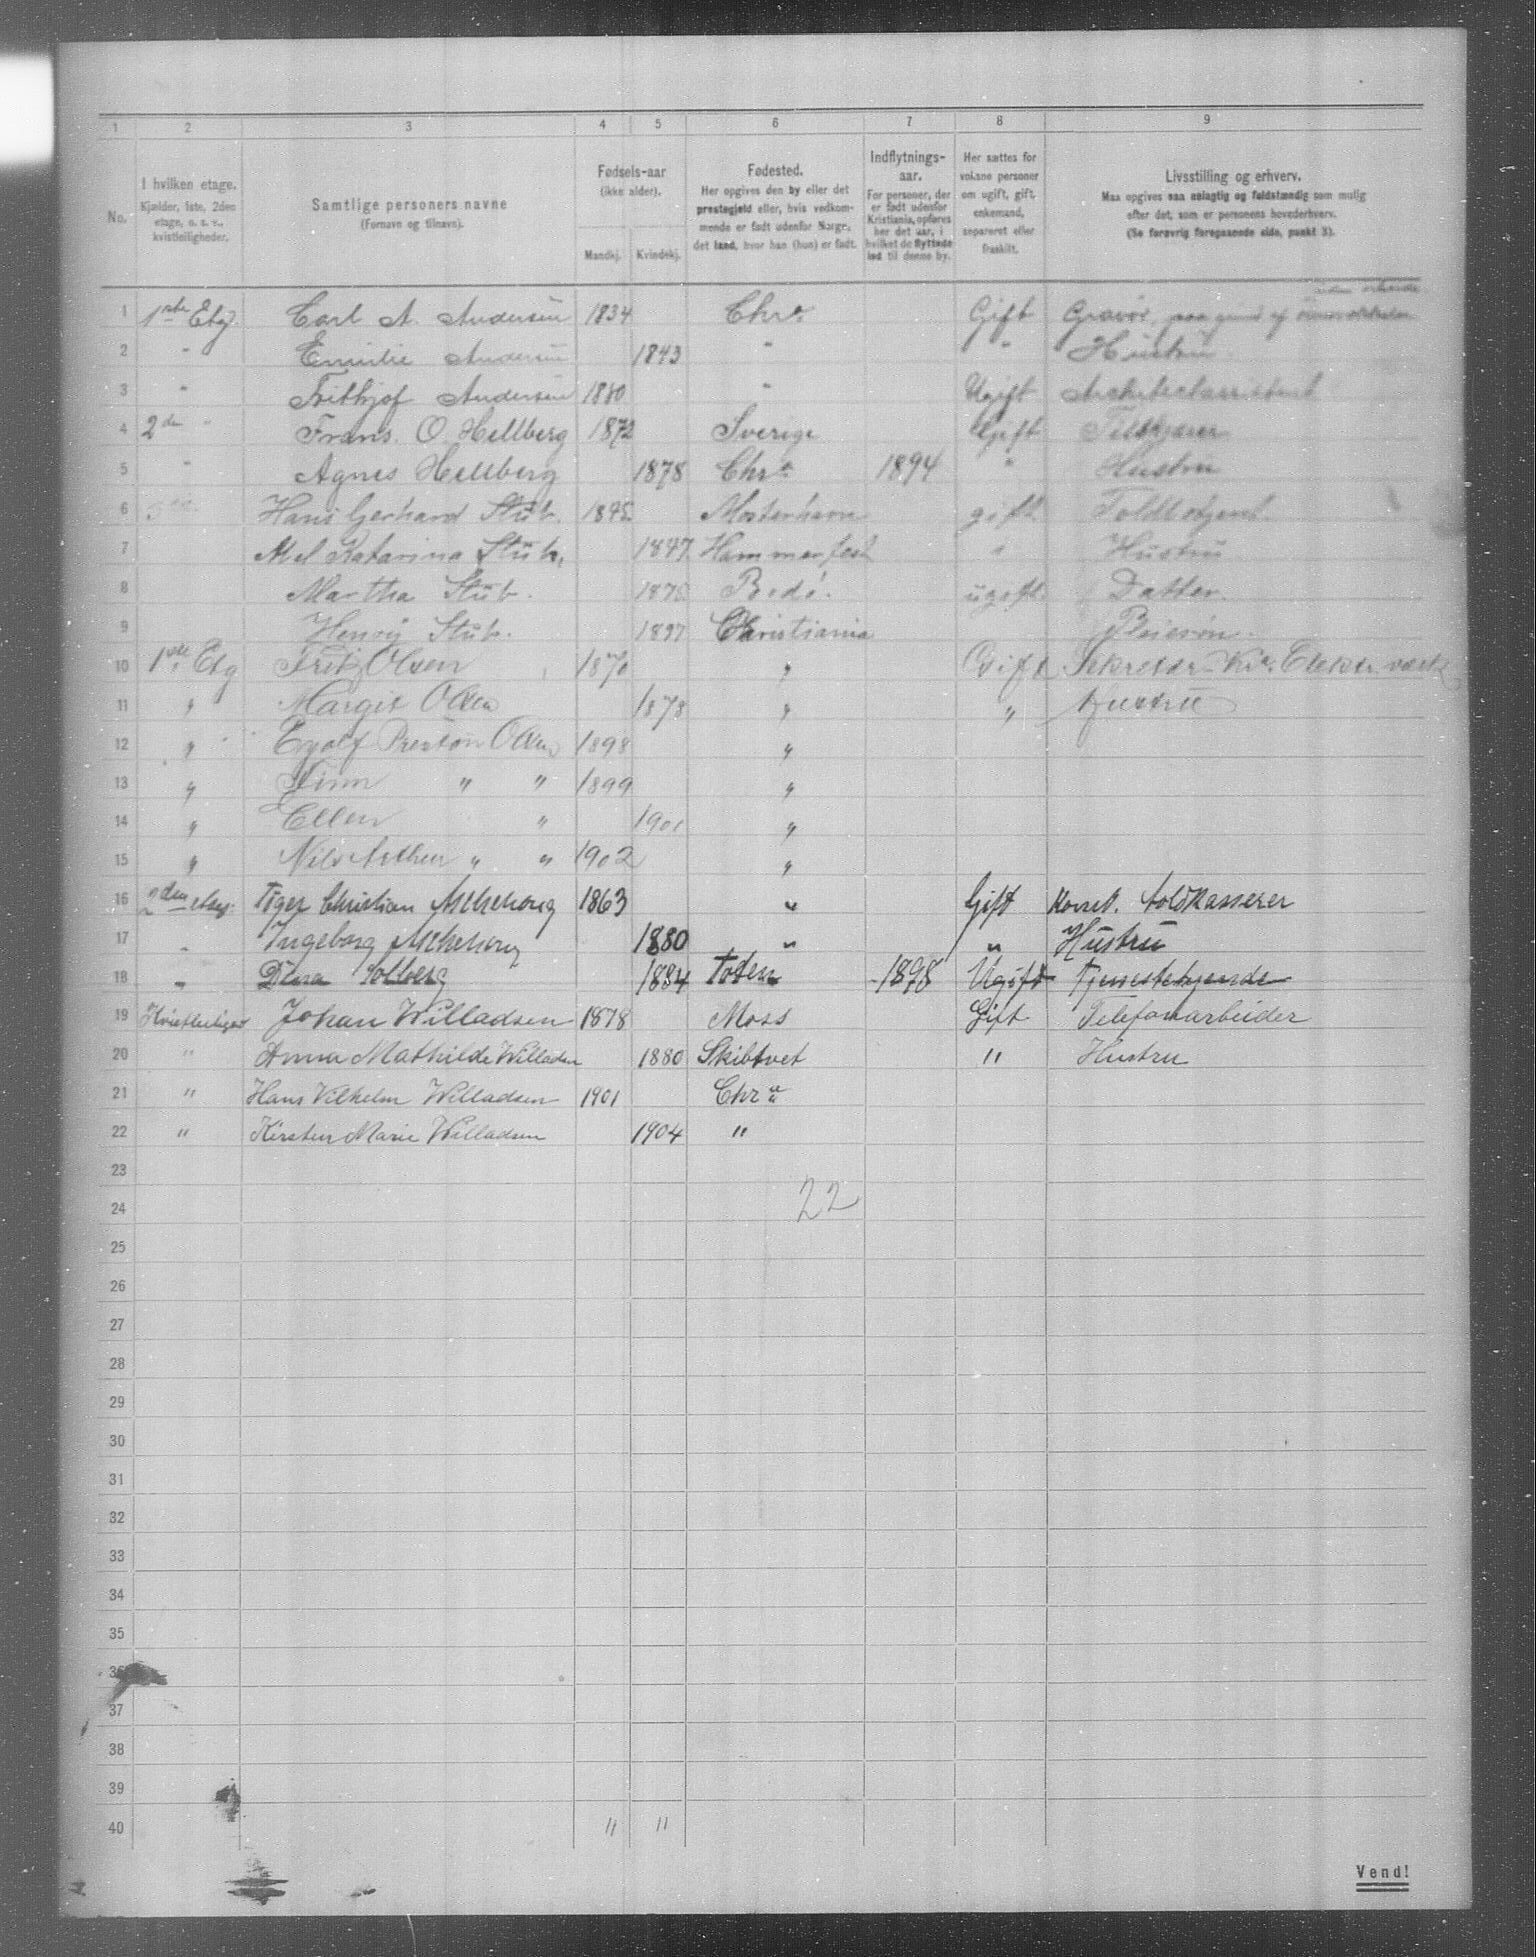 1 2 3 4 5 6 7 8 9
No. I hvilken etage. Kjælder, 1ste, 2den etage, o. s. v., kvistleiligheder. Samtlige personers navne (Fornavn og tilnavn). Fødsels-aar (ikke alder). Mandkj. Kvindekj. Fødested. Her opgives den by eller det prestegjeld eller, hvis vedkommende er født udenfor Norge, det land, hvor han (hun) er født. Indflytnings-aar. For personer, der er født udenfor Kristiania, opføres her det aar, i hvilket de flyttede ind til denne by. Her sættes for voksne personer om ugift, gift, enkemand, separeret eller fraskilt. Livsstilling og erhverv. Maa opgives saa nøiagtig og fuldstændig som mulig efter det, som er personens hovederhverv. (Se forøvrig foregaaende side, punkt 3).
1 1ste Etg. Carl A. Andersen 1834 Chr.a Gift Gravør, paa grund af uden arbeide
2 " Emilie Andersen 1843 " " Hustru
3 " Frithjof Andersen 1880 " Ugift Arkitektassistent
4 2den " Frans. O. Hellberg 1872 Sverige Gift
5 " Agnes Hellberg 1878 Chr.a 1894 " Hustru
6 Hans Gerhard Stub. 1845 gift Toldbetjent.
7 Katarina Stub, 1847. Hammerfest " Hustru
8 Martha Stub. 1875 Bodö. ugift. Datter.
9 Henry Stub. 1897 Christiania Pleiesøn.
10 1ste Etg Fritz Olsen 1870 " Gift Sekretær Kr.a Elektr. værk
11 " Margit Olsen 1878 " " Hustru
12 " Eyolf Preston Olsen 1898 "
13 " Finn " " 1899 "
14 " Ellen " 1901 "
15 " Nils Arthur " " 1902 "
16 2den etag. Tøger Christian Aschehoug 1863 " Gift Konst. Toldkasserer
17 " Ingeborg Aschehoug 1880 " " Hustru
18 " Dina Solberg 1884 Toten 1898 Ugift Tjenestepige
19 Kvistleilighed Johan Willadsen 1878 Moss Gift Telefonarbeider
20 " Anna Mathilde Willadsen 1880 Skibtvet " Hustru
21 " Hans Vilhelm Willadsen 1901 Chr.a
22 " Kirsten Marie Willadsen 1904 "
23
24 22
25
26
27
28
29
30
31
32
33
34
35
36
37
38
39
40 " "
Vend!